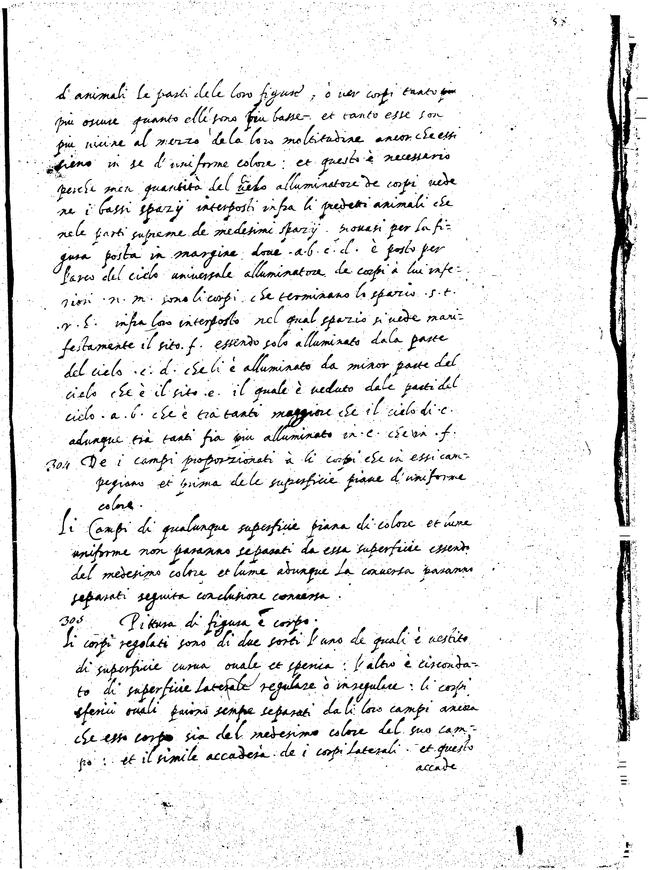 d'animali le parti dele loro figure, ò ver corpi tanto piu
piu oscure quanto elle sono piu basse. et tanto esse son
piu vicine al mezzo dela loro moltitudine ancor che essi
sieno in se d'uniforme colore : et questo è necessario
perche men quantità del cielo alluminatore de corpi vede
ne i bassi spazij interposti infra li predetti animali che
nele parti supreme de medesimi spazij. provasi per la fi=
gura posta in margine dove .a.b.c.d. è posto per
l'arco del cielo universale alluminatore de corpi à lui infe=
riori .n.m. sono li corpi che terminano lo spazio .s.t.
.r.h. infra loro interposto nel qual spazio si vede mani=
festamente il sito.f. essendo solo alluminato dala parte
del cielo .c.d. che li è alluminato da minor parte del
cielo che è il sito .e. il quale è veduto dale parti del
cielo .a.b. che è tra tanti maggiore che il cielo di .c.
adunque tra tanti fia piu alluminato in .e. che in .f.
304 De i campi proporzionati à li corpi che in essi cam=
pegiano et prima dele superficie piane d'uniforme
colore.
Li Campi di qualunque superficie piana di colore et lume
uniforme non paranno separati da essa superficie essendo
del medesimo colore et lume adunque la conversa paranno
separati seguita conclusione conversa.
305 Pittura di figura è corpo.
Li corpi regolati sono di due sorti l'uno de quali è vestito
di superficie curva ovale et sperica : l'altro è circonda=
to di superficie laterale regulare ò inregulare : li corpi
sferici ovali paiono sempre separati dali loro campi ancora
che esso corpo sia del medesimo colore del suo cam=
po : et il simile accaderà de i corpi laterali. et questo
accade